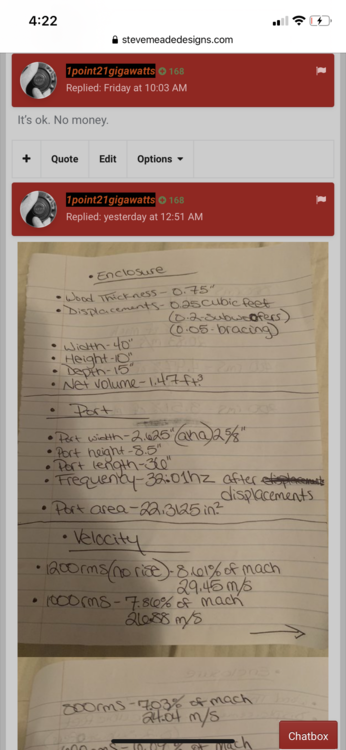 4:22
stevemeadedesigns.com
1point21gigawatts 168
Replied: Friday at 10:03 AM
It's ok. No money.
+ Quote Edit Options
1point21gigawatts 168
Replied: yesterday at 12:51 AM
• Enclosure
• Wood Thickness - 0.75"
• Displacements - 0.25 cubic feet
(0.2 subwoofers)
(0.05 - bracing)
• Width - 40"
• Height - 10"
• Depth - 15"
• Net volume - 1.47 ft.³
• Port
• Port width - 2.625" (aka) 2 5/8"
• Port height - 8.5"
• Port length - 36"
• Frequency - 32.01hz after
displacements
• Port area - 22.3125 in²
• Velocity
• 1200rms (no rise) - 8.61% of mach
29.45 m/s
• 1000rms - 7.86% of mach
26.88 m/s
800rms - 7.03% of mach
24.04 m/s
of mach
Chatbox